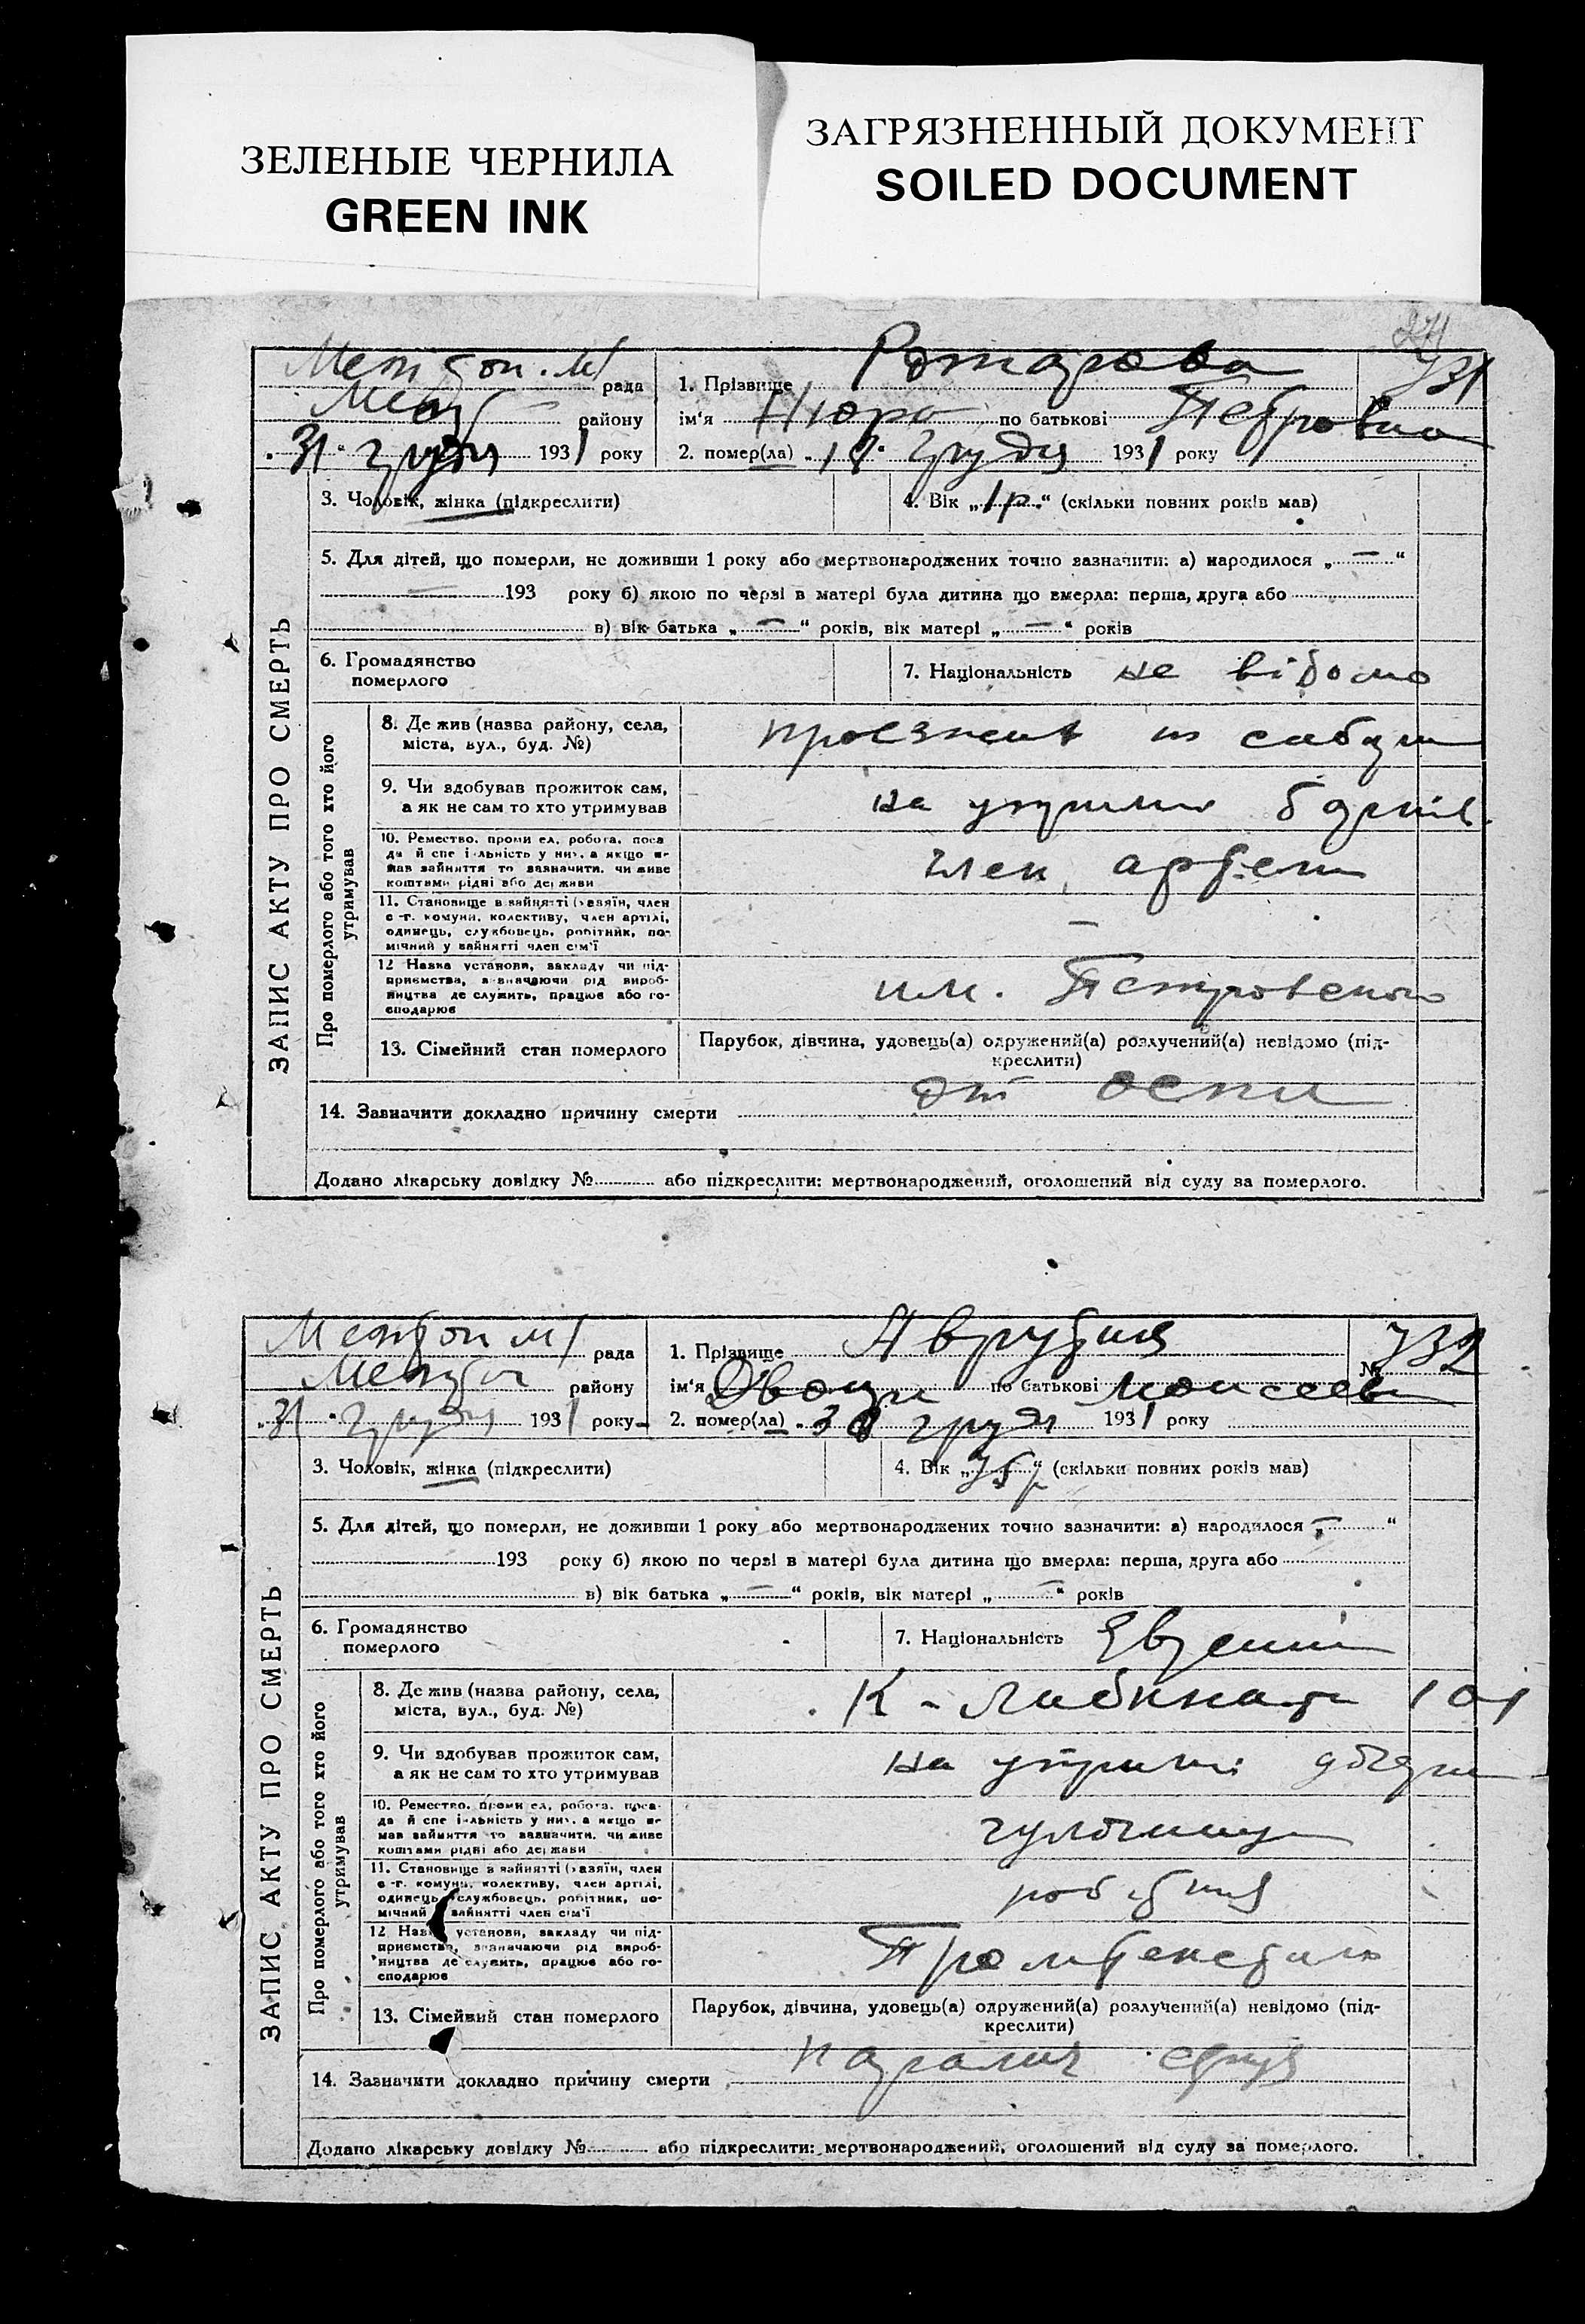 ЗЕЛЕНЫЕ ЧЕРНИЛА
GREEN INK
ЗАГРЯЗНЕННЫЙ ДОКУМЕНТ
SOILED DOCUMENT
рада
району
31 грудня 1931 року
1. Прізвище
731
ім'я Нюра по батькові Петровна
2. помер(ла) грудня 1931 року
ЗАПИС АКТУ ПРО СМЕРТЬ
3. Чоловік, жінка (підкреслити)
4. Вік „1 р.“ (скільки повних років мав)
5. Для дітей, що померли, не доживши 1 року або мертвонароджених точно зазначити: а) народилося „—“
193 року б) якою по черзі в матері була дитина що вмерла: перша, друга або
в) вік батька „—“ років, вік матері „—“ років
6. Громадянство
померлого
7. Національність не відомо
Про померлого або того хто його
утримував
8. Де жив (назва району, села,
міста, вул., буд. №)
9. Чи здобував прожиток сам,
а як не сам то хто утримував
на
10. Ремество, промисел, робота, поса
да й спеціяльність у них, а якщо не
мав зайняття то зазначити, чи живе
коштами рідні або держави
член
11. Становище в зайнятті (хазяїн, член
с-г. комуни, колективу, член артілі,
одинець, службовець, робітник, по-
мічний у зайнятті член сім'ї
—
12 Назва установи, закладу чи під-
приємства, зазначаючи рід вироб-
ництва де служить, працює або го-
сподарює
им. Петровского
13. Сімейний стан померлого
Парубок, дівчина, удовець(а) одружений(а) розлучений(а) невідомо (під-
креслити)
14. Зазначити докладно причину смерти
от оспи
Додано лікарську довідку № або підкреслити: мертвонароджений, оголошений від суду за померлого.
рада
району
31 грудня 1931 року
1. Прізвище
№ 732
ім'я по батькові
2. помер(ла) грудня 1931 року
ЗАПИС АКТУ ПРО СМЕРТЬ
3. Чоловік, жінка (підкреслити)
4. Вік (скільки повних років мав)
5. Для дітей, що померли, не доживши 1 року або мертвонароджених точно зазначити: а) народилося „—“
193 року б) якою по черзі в матері була дитина що вмерла: перша, друга або
в) вік батька „—“ років, вік матері „—“ років
6. Громадянство
померлого
7. Національність
Про померлого або того хто його
утримував
8. Де жив (назва району, села,
міста, вул., буд. №)
К-Либкнехта 101
9. Чи здобував прожиток сам,
а як не сам то хто утримував
на
10. Ремество, промисел, робота, поса-
да й спеціяльність у них, а якщо не
мав зайняття то зазначити, чи живе
коштами рідні або держави
11. Становище в зайнятті (хазяїн, член
с-г. комуни, колективу, член артілі,
одинець, службовець, робітник, по-
мічний у зайнятті член сім'ї
12 Назва установи, закладу чи під-
приємства, зазначаючи рід вироб-
ництва де служить, працює або го-
сподарює
13. Сімейний стан померлого
Парубок, дівчина, удовець(а) одружений(а) розлучений(а) невідомо (під-
креслити)
14. Зазначити докладно причину смерти
параліч серця
Додано лікарську довідку № або підкреслити: мертвонароджений, оголошений від суду за померлого.